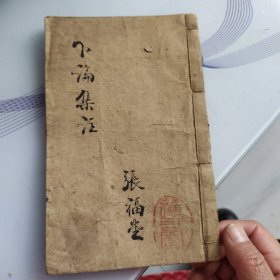 下論集註
張福堂